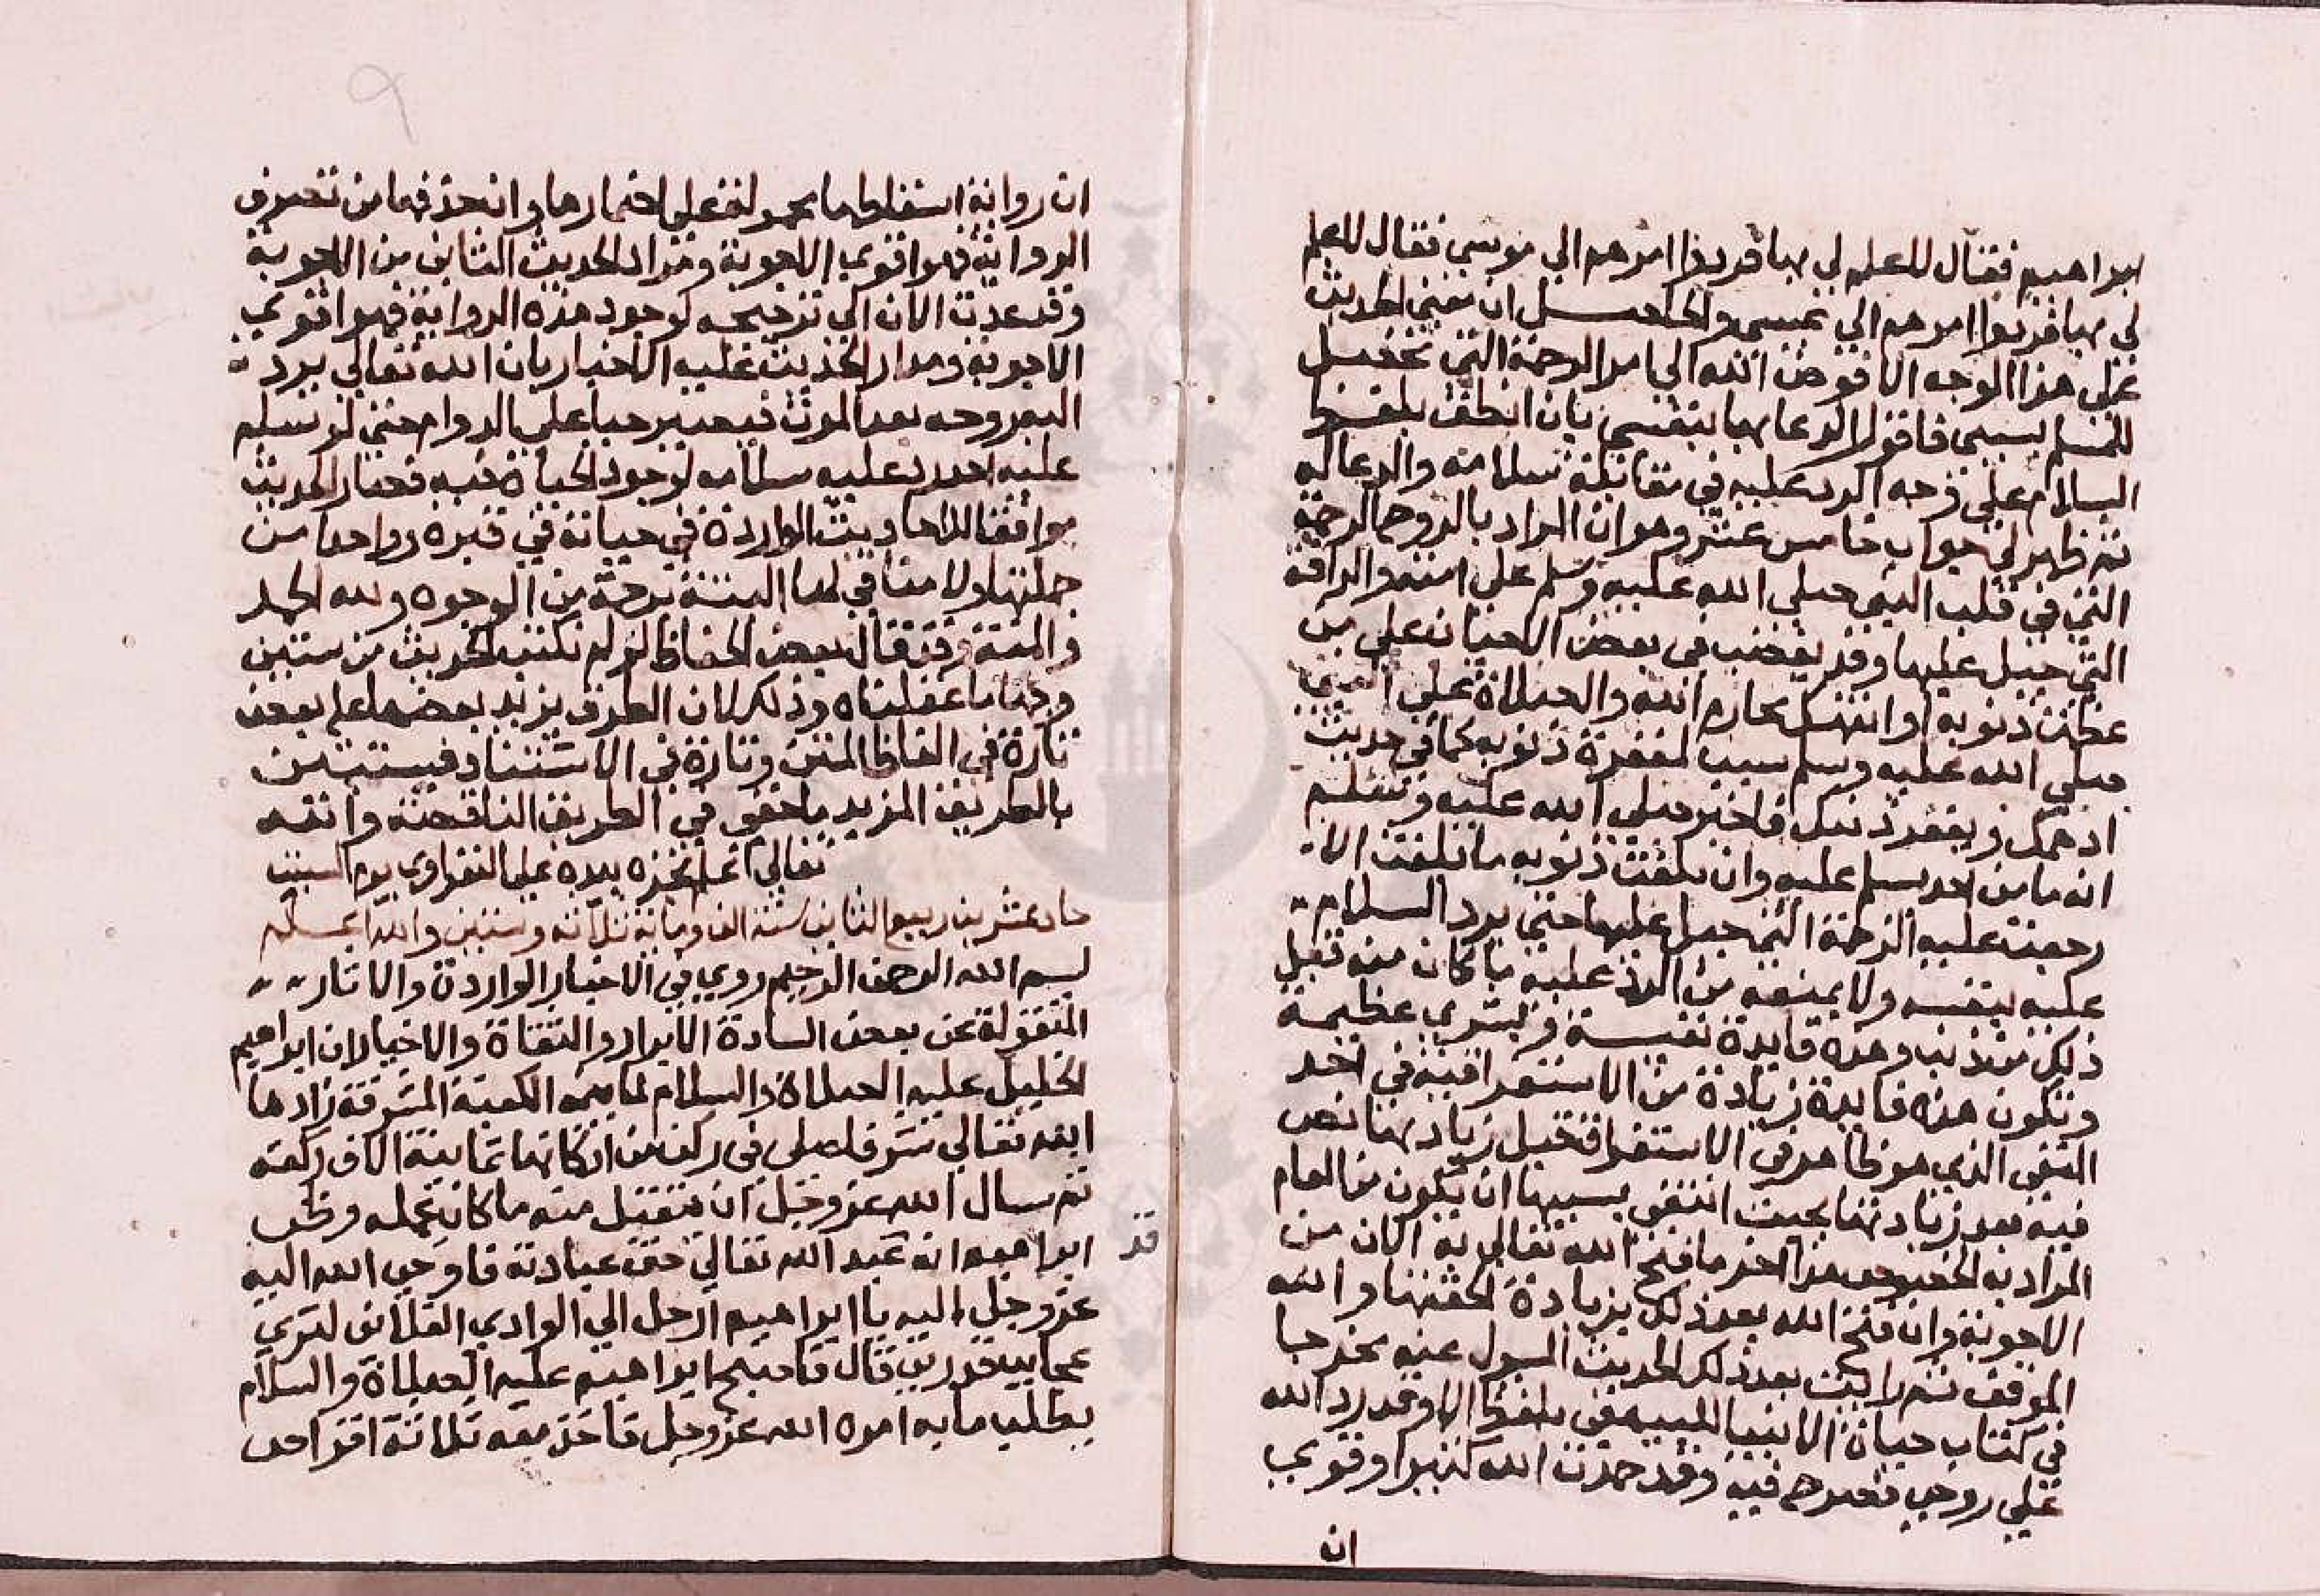 ابراهيم فقال لا علم لي بها فردوا امرهم الي موسي فقال لا علم
لي بها فردوا امرهم الي عيسي والحاصل ان معني الحديث
علي هذا الوجه الا فوض الله الي امر الرحمة التي تحصل
للمسلم بسببي فاتولا الدعا بها بنفسي بان انطق بلفظ
السلام علي وجه الرد عليه في مقابلة سلامه والدعا له
ثم ظهر لي جواب خامس عشر وهو ان المراد بالروح الرحمة
التي في قلب النبي صلي الله عليه وسلم علي امته والرافة
التي جبل عليها وقد يغضب في بعض الاحيان علي من
عظمت ذنوبه او انتهك محارم الله والصلاة علي النبي
صلي الله عليه وسلم سبب لمغفرة ذنوبه كما في حديث
اذ همك ويغفر ذنبك فاخبر صلي الله عليه وسلم
انه ما من احد يسلم عليه وان بلغت ذنوبه ما بلغت الا
رجعت عليه الرحمة التي جبل عليها حتي يرد السلام
عليه بنفسه ولا يمنعه من الرد عليه ما كان منه قبل
ذلك من ذنب وهذه فايدة نفيسة وبشري عظيمة
وتكون هذه فايدة زيادة من الاستغراقية في احد
النفي الذي هو ظاهر في الاستغراق قبل زيادتها نص
فيه بعد زيادتها بحيث انتفي بسببها ان يكون من العام
المراد به الخصوص هذا اخر ما فتح الله تعالي به الان من
الاجوبة وان فتح الله بعد ذلك بزيادة الحقتها والله
الموفق ثم رايت بعد ذلك الحديث المسول عنه مخرجا
في كتاب حياة الانبيا للبيهقي بلفظ الا وقد رد الله
علي روحي فصرح فيه وقد حمدت الله كثيرا وقوي
ان
ان رواية اسقاطها محمولة علي اضمارها وان حذفها من تصرف
الرواية فهو اقوي الاجوبة ومراد الحديث الثاني من الاجوبة
وقد عدت الان الي ترجيحه لوجود هذه الرواية فهو اقوي
الاجوبة ومدار الحديث عليه الاخبار بان الله تعالي يرد
اليه روحه بعد الموت فيصير حيا علي الدوام حتي لو سلم
عليه احد رد عليه سلامه لوجود الحياة فيه فصار الحديث
موافقا للاحاديث الواردة في حياته في قبره وواحدا من
جملتها ولا منافي لها البتة بوجه من الوجوه ولله الحمد
والمنة وقد قال بعض الحفاظ لو لم نكتب الحديث من ستين
وجها ما عقلناه وذلك لان الطرق يزيد بعضها علي بعض
تارة في الفاظ المتن وتارة في الاسناد فيستبين
بالطريق المزيد ما خفي في الطريق الناقصة والله
تعالي اعلم نجزه بيده علي النفراوي يوم السبت
حادعشرين ربيع الثاني سنة الف ومايه ثلاثه وستين والله اعلم
بسم الله الرحمن الرحيم روي في الاخبار الواردة والاثار
المنقولة عن بعض السادة الابرار والثقاة والاخيار ان ابراهيم
الخليل عليه الصلاة والسلام لما تمم الكعبة المشرفة زادها
الله تعالي شرفا صلي في ركن من اركانها ثمانية الاف ركعة
ثم سال الله عز وجل ان يتقبل منه ما كان عمله وظن
ابراهيم انه عبد الله تعالي حق عبادته فاوحي الله اليه
قد
عز وجل اليه يا ابراهيم ارحل الي الوادي الفلاني لتري
عجايب قدرتي قال فاصبح ابراهيم عليه الصلاة والسلام
يطلب ما به امره الله عز وجل فاخذ معه ثلاثة اقراص